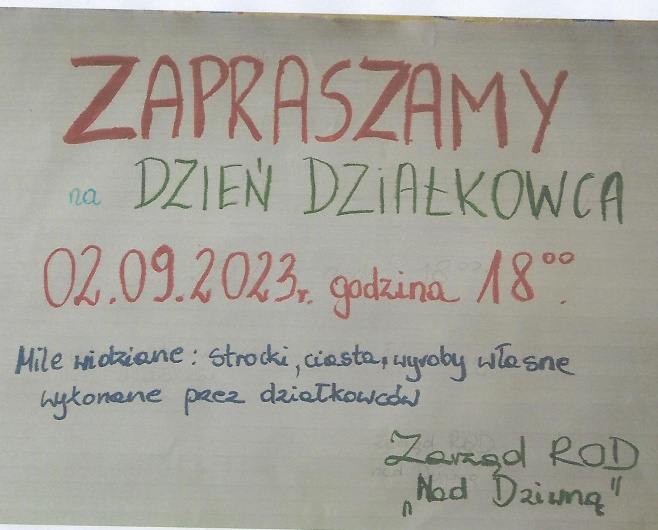 ZAPRASZAMY
na DZIEŃ DZIAŁKOWCA
02.09.2023r. godzina 18ºº.
Mile widziane: strocki, ciasta, wyroby własne
wykonane przez działkowców
Zarząd ROD
„Nad Dziwną"